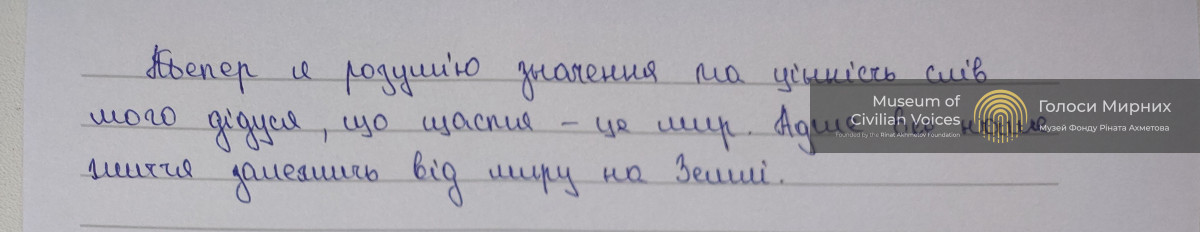 Тепер я розумію значення та цінність слів
мого дідуся, що щастя – це мир. Адже
життя залежить від миру на Землі.
Museum of
Civilian Voices
Founded by the Rinat Akhmetov Foundation
Голоси Мирних
Музей Фонду Ріната Ахметова